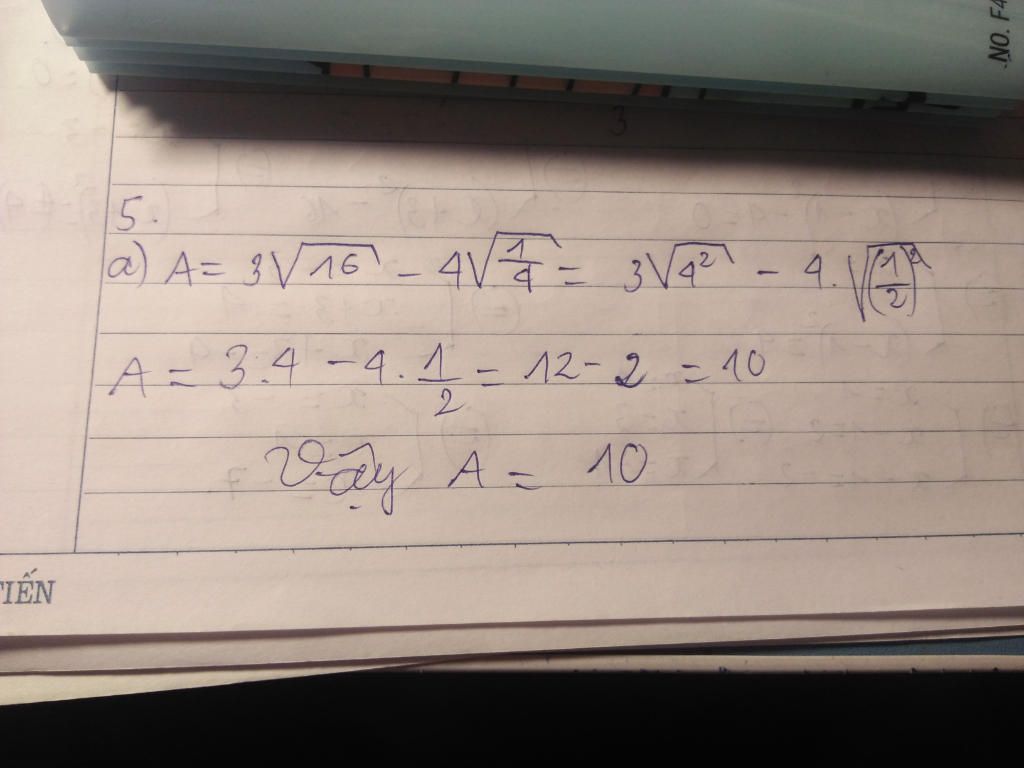 NO. F4
3
5.
a) A = 3√16 - 4√(1/4) = 3√4² - 4.√(1/2)²
A = 3.4 - 4.1/2 = 12 - 2 = 10
Vậy A = 10
TIẾN